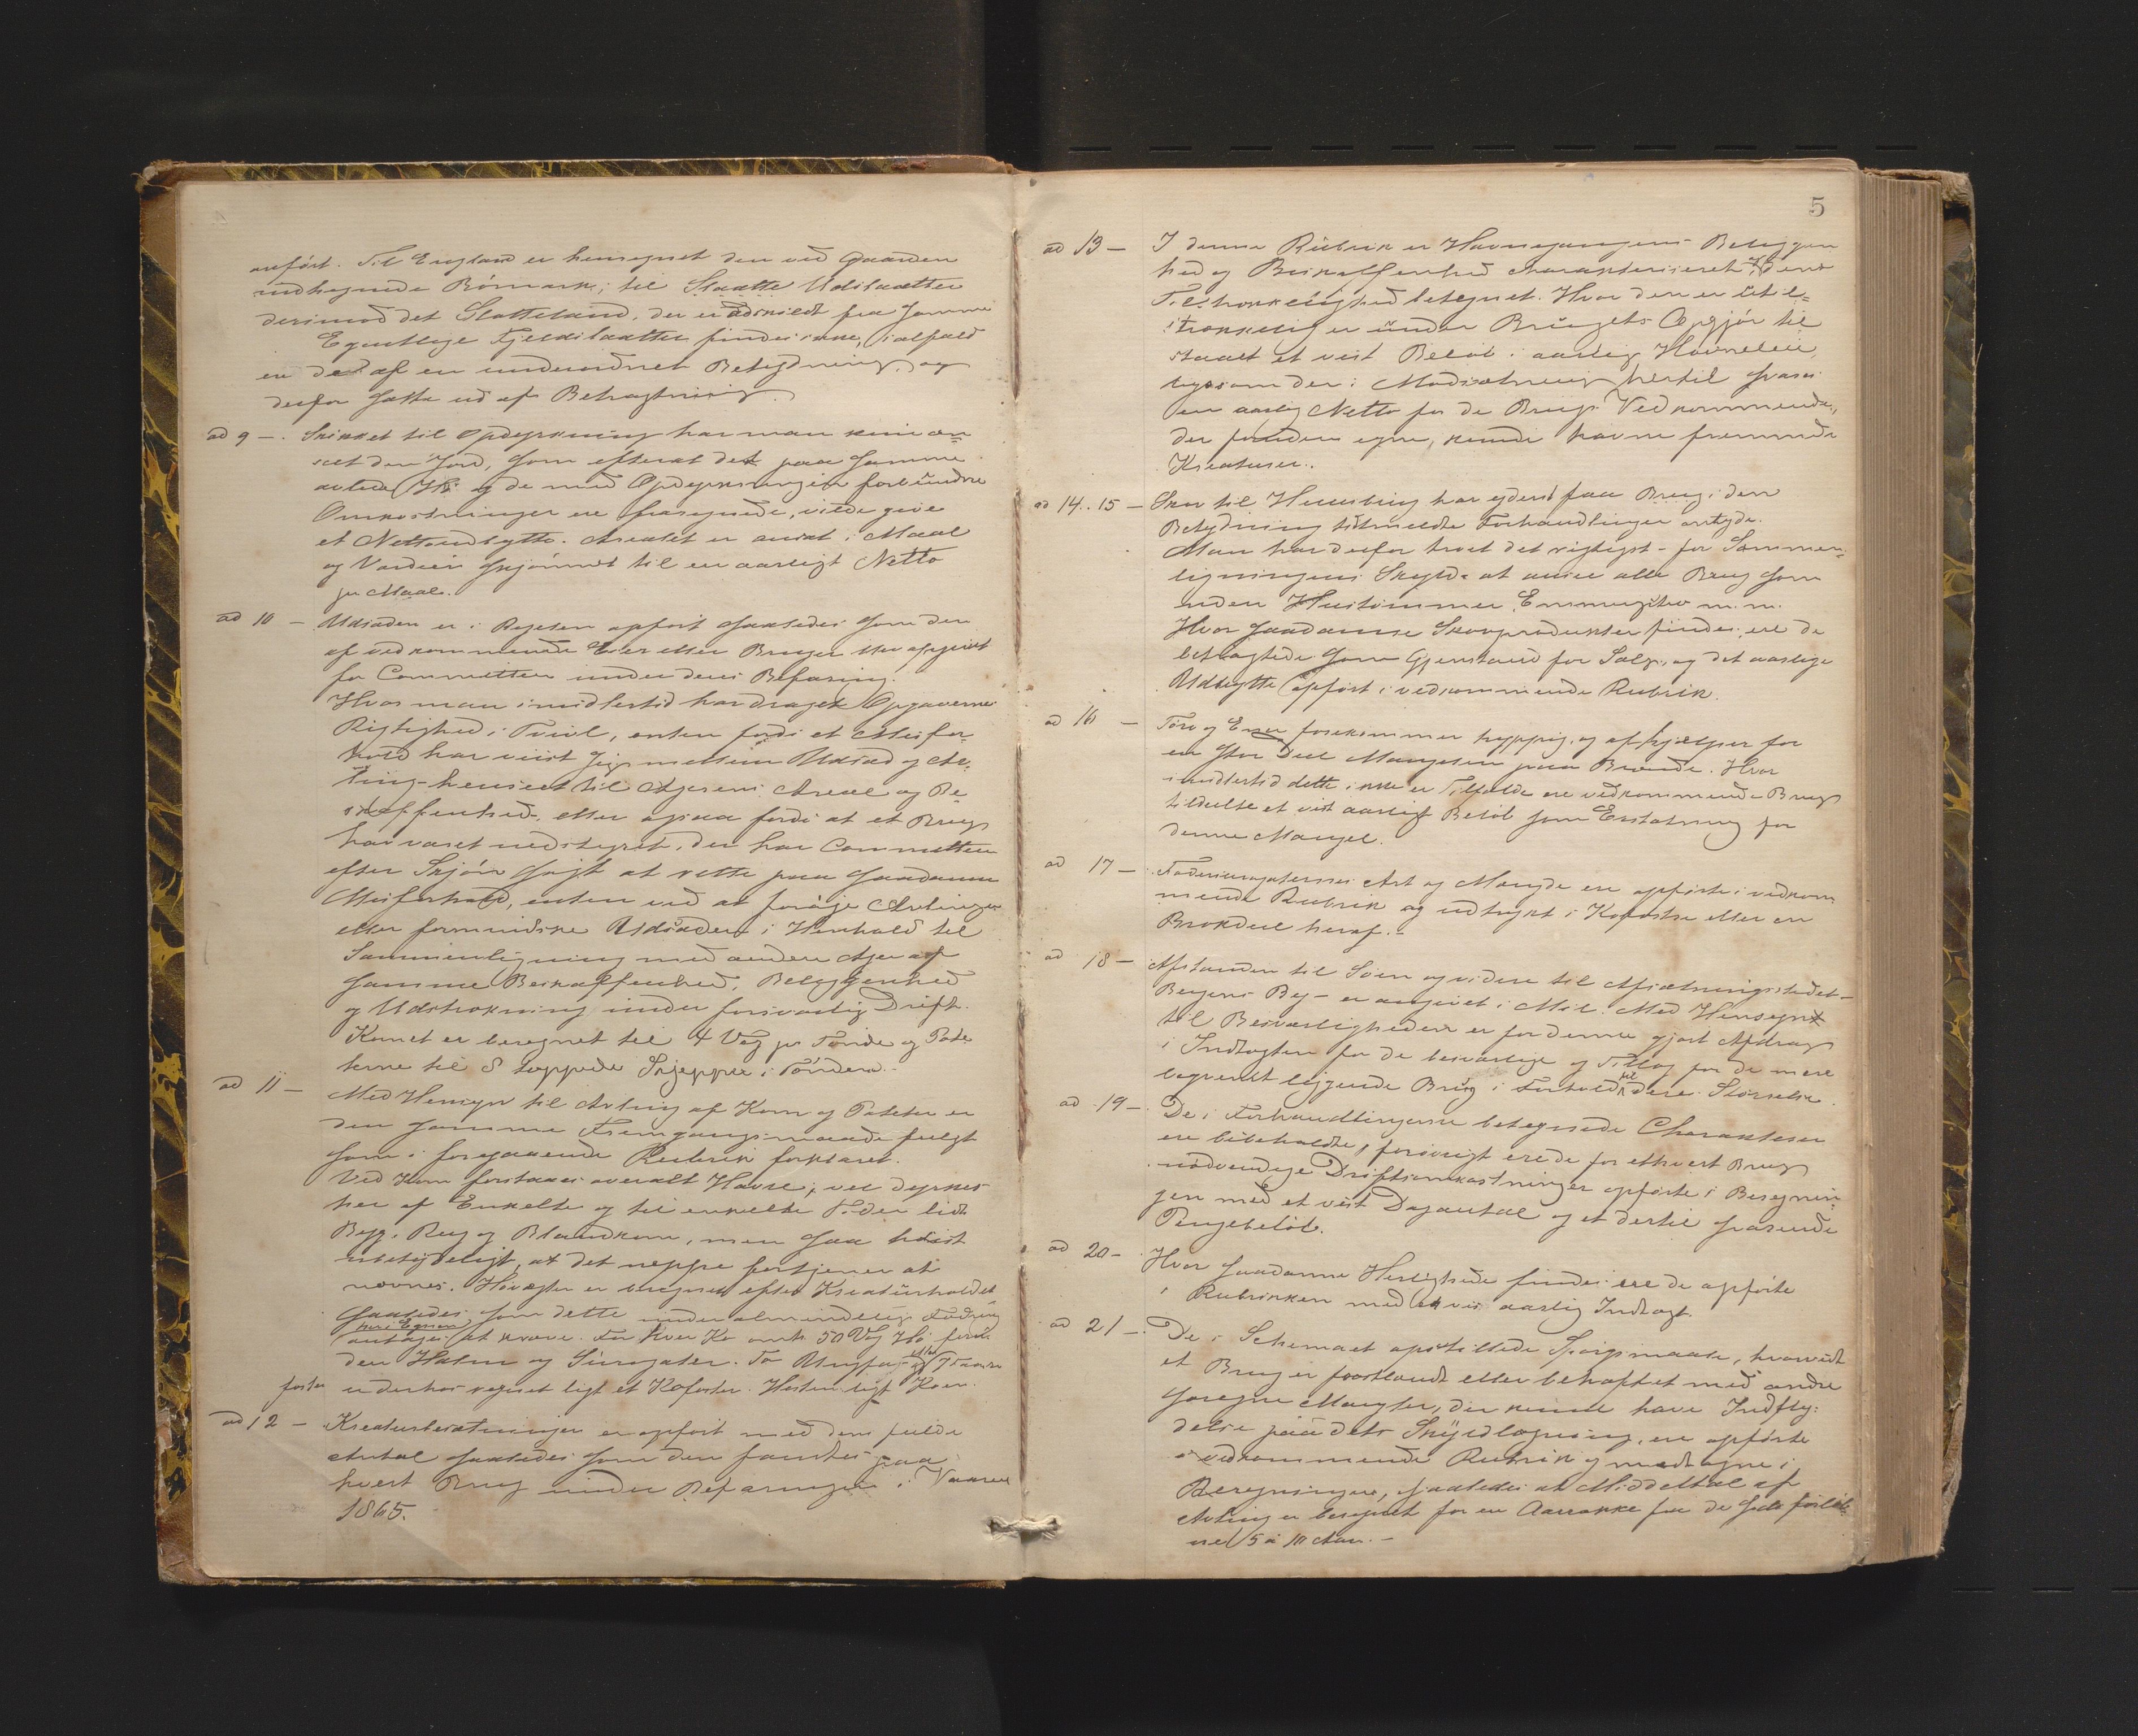 anført. Til England er henregnet den ved Gaarden
indhegnede Bømark; til Slaatte Udslaatter
derimod det Slotteland, der er adskildt fra samme
Egentlige Fjeldslaatter findes ikke, ialfald
ere de af en underordnet Betydning, og
derfor satte ud af Betragtning.
ad 9 -. Skikket til Opdyrkning har man kun an-
seet den Jord, som efterat det paa samme
avlede Hø og de med Opdyrkningen forbundne
Omkostninger ere fraregnede, vilde give
et Nettoudbytte. Arealet er ansat i Maal
og Værdien skjønnet til en aarligt Netto
pr Maal.
ad 10 - Udsæden er i Regelen opført saaledes som den
af vedkommende Eier eller Bruger blev opgivet
for Committeen under dens Befaring.
Hvor man imidlertid har draget Opgavernes
Rigtighed i Tvivl, enten fordi et Misfor-
hold har viist sig mellem Udsæd og Av-
ling - henseet til Agerens Areal og Be-
skaffenhed, eller ogsaa fordi at et Brug
har været vedstyret, der har Committeen
efter Skjøn søgt at rette paa saadanne
Misforhold, enten ved at forøge Avlingen
eller formindske Udsæden i Henhold til
Sammenligning med anden Ager af
samme Beskaffenhed, Beliggenhed
og Udstrækning under forsvarlig Drift.
Kornet er beregnet til 4 Vog pr Tønde og Pote-
terne til 8 toppede Skjepper i Tønden.
ad 11 - Med Hensyn til Avling af Korn og Poteter er
den samme Fremgangsmaade fulgt
som i foregaaende Rubrik forklaret.
Ved Korn forstaaes overalt Havre; vel dyrkes
her af Enkelte og til enkelte Tider lidt
Byg, Rug og Blandkorn, men saa høist
ubetydeligt, at det neppe fortjener at
nævnes. Høvægten er beregnet efter Kreaturholdet
saaledes som dette under almindelig Fodring
her i Egnen
antages at kræve. For hver Ko omtr. 50 Vog Hø foru-
den Halm og Surrogater. To Ungfæ eller 7 Faar
er derhos regnet ligt et Kofoster. Hesten ligt Koen.
foster
ad 12 - Kreaturbesætningen er opført med dem fulde
Antal saaledes som den fandtes paa
hvert Brug under Befaringen i Vaaren
1865.
5
ad 13 - I denne Rubrik er Havnegangens Beliggen
hed og Beskaffenhed charakteriseret, dens
Tilstrækkelighed betegnet. Hvor den er util-
strækkelig er under Brugets Opgjør til
staaet et vist Beløb i aarlig Havneleie,
ligesom der i Modsætning hertil svares
en aarlig Netto for de Brugs Vedkommende,
der foruden egne, kunde havne fremmede
Kreaturer.
ad 14. 15 - Skov til Huusbrug har ydend faa Brug den
Betydning tidtmeldte Forhandlinger antyde.
Man har derfor troet det rigtigst - for Sammen-
ligningens Skyld - at ansee alle Brug som
uden Huustømmer, Emmnegstrø m. m.
Hvor saadanne Skovprodukter findes, ere de
betragtede som Gjenstand for Salg, og det aarlige
Udbytte opført i vedkommende Rubrik.
ad 16 - Torv og Ener forekommer hyppig, og afhjælper for
en stor Deel Mangelen paa Brænde. Hvor
imidlertid dette ikke er Tilfælde ere vedkommende Brug
tildeelte et vist aarligt Beløb som Erstatning for
denne Mangel.
ad 17 - Fodersurrogaternes Art og Mængde ere opførte i vedkom
mende Rubrik og udtrykt i Kofostre eller en
Brøkdeel heraf. -
ad 18 - Afstanden til Søen og videre til Afsætningsstedet -
Bergens By - er angivet i Mil. Med Hensyn
til Besværligheden er for denne gjort Afdrag
i Indtægten for de besværlige og Tillæg for de mere
beqvemt liggende Brug i Forhold til dere Størrelse.
ad 19 - De i Forhandlingerne betegnede Charakterer
ere bibeholdte, forøvrigt ere de for ethvert Brug
nødvendige Driftsomkostninger opførte i Beregnin-
gen med et vist Dagantal og et dertil svarende
Pengebeløb.
ad 20 - Hvor saadanne Herligheder findes ere de opførte
i Rubrikken med en vis aarlig Indtægt.
ad 21 -. De i Schemaet opstillede Spørgsmaale, hvorvidt
et Brug er frostlændt eller behæftet med andre
saregne Mangler, der kunde have Indfly-
delse paa dets Skyldlægning, ere opførte
i vedkommende Rubrik og medtagne i
Beregningen, saaledes at Middeltal af
Avling er beregnet for en Aarrække fra de sidst forløb-
ne 5 à 10 Aar. -